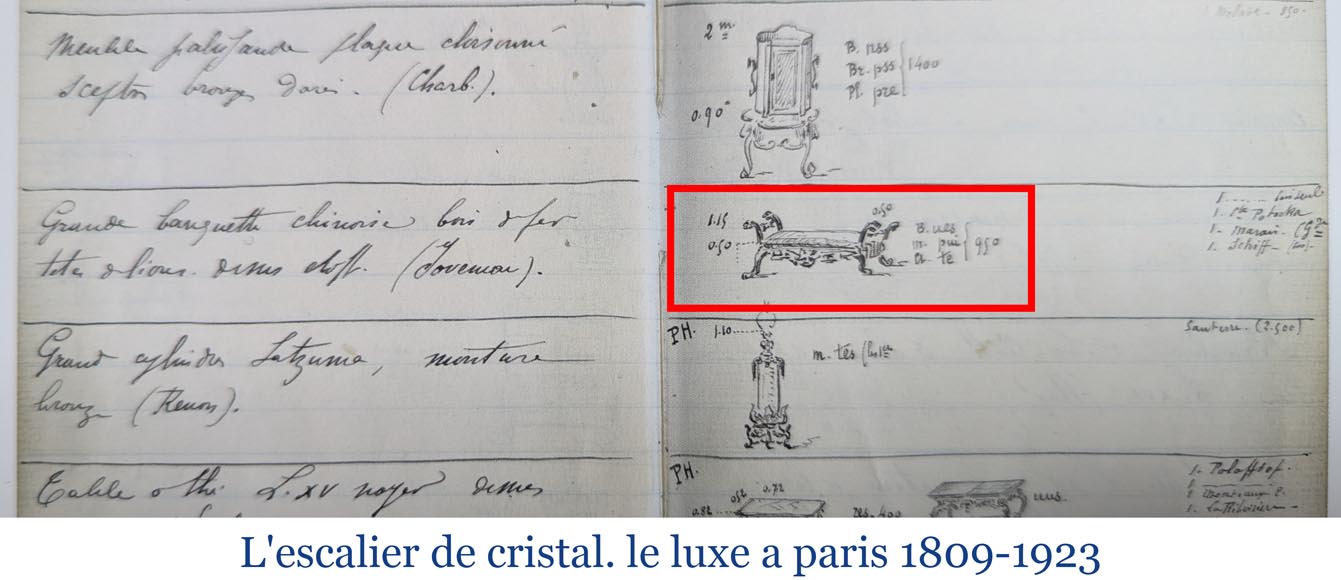 Meuble palissande plaque cloisonné
sceptres bronzes dorés. (Charb.).
2 m
0.90
B. nss
Br. pss
Pl. pre
1400
Grande banquette chinoise bois de fer
têtes de lions. dessus étoff. (Jovenau).
1.15
0.50
0.50
B. ues
m. pui
950
1. Potocka
1. Marais.
1. Schiff
Grand cylindre Satzuma, monture
bronze (Renon).
PH.
1.10
m. tes
Santerre. (2.500)
Table à thé L. XV noyer dessus
PH.
0.52
0.72
0.82
res. 400
uus.
1. Polofftof.
L'escalier de cristal. le luxe a paris 1809-1923